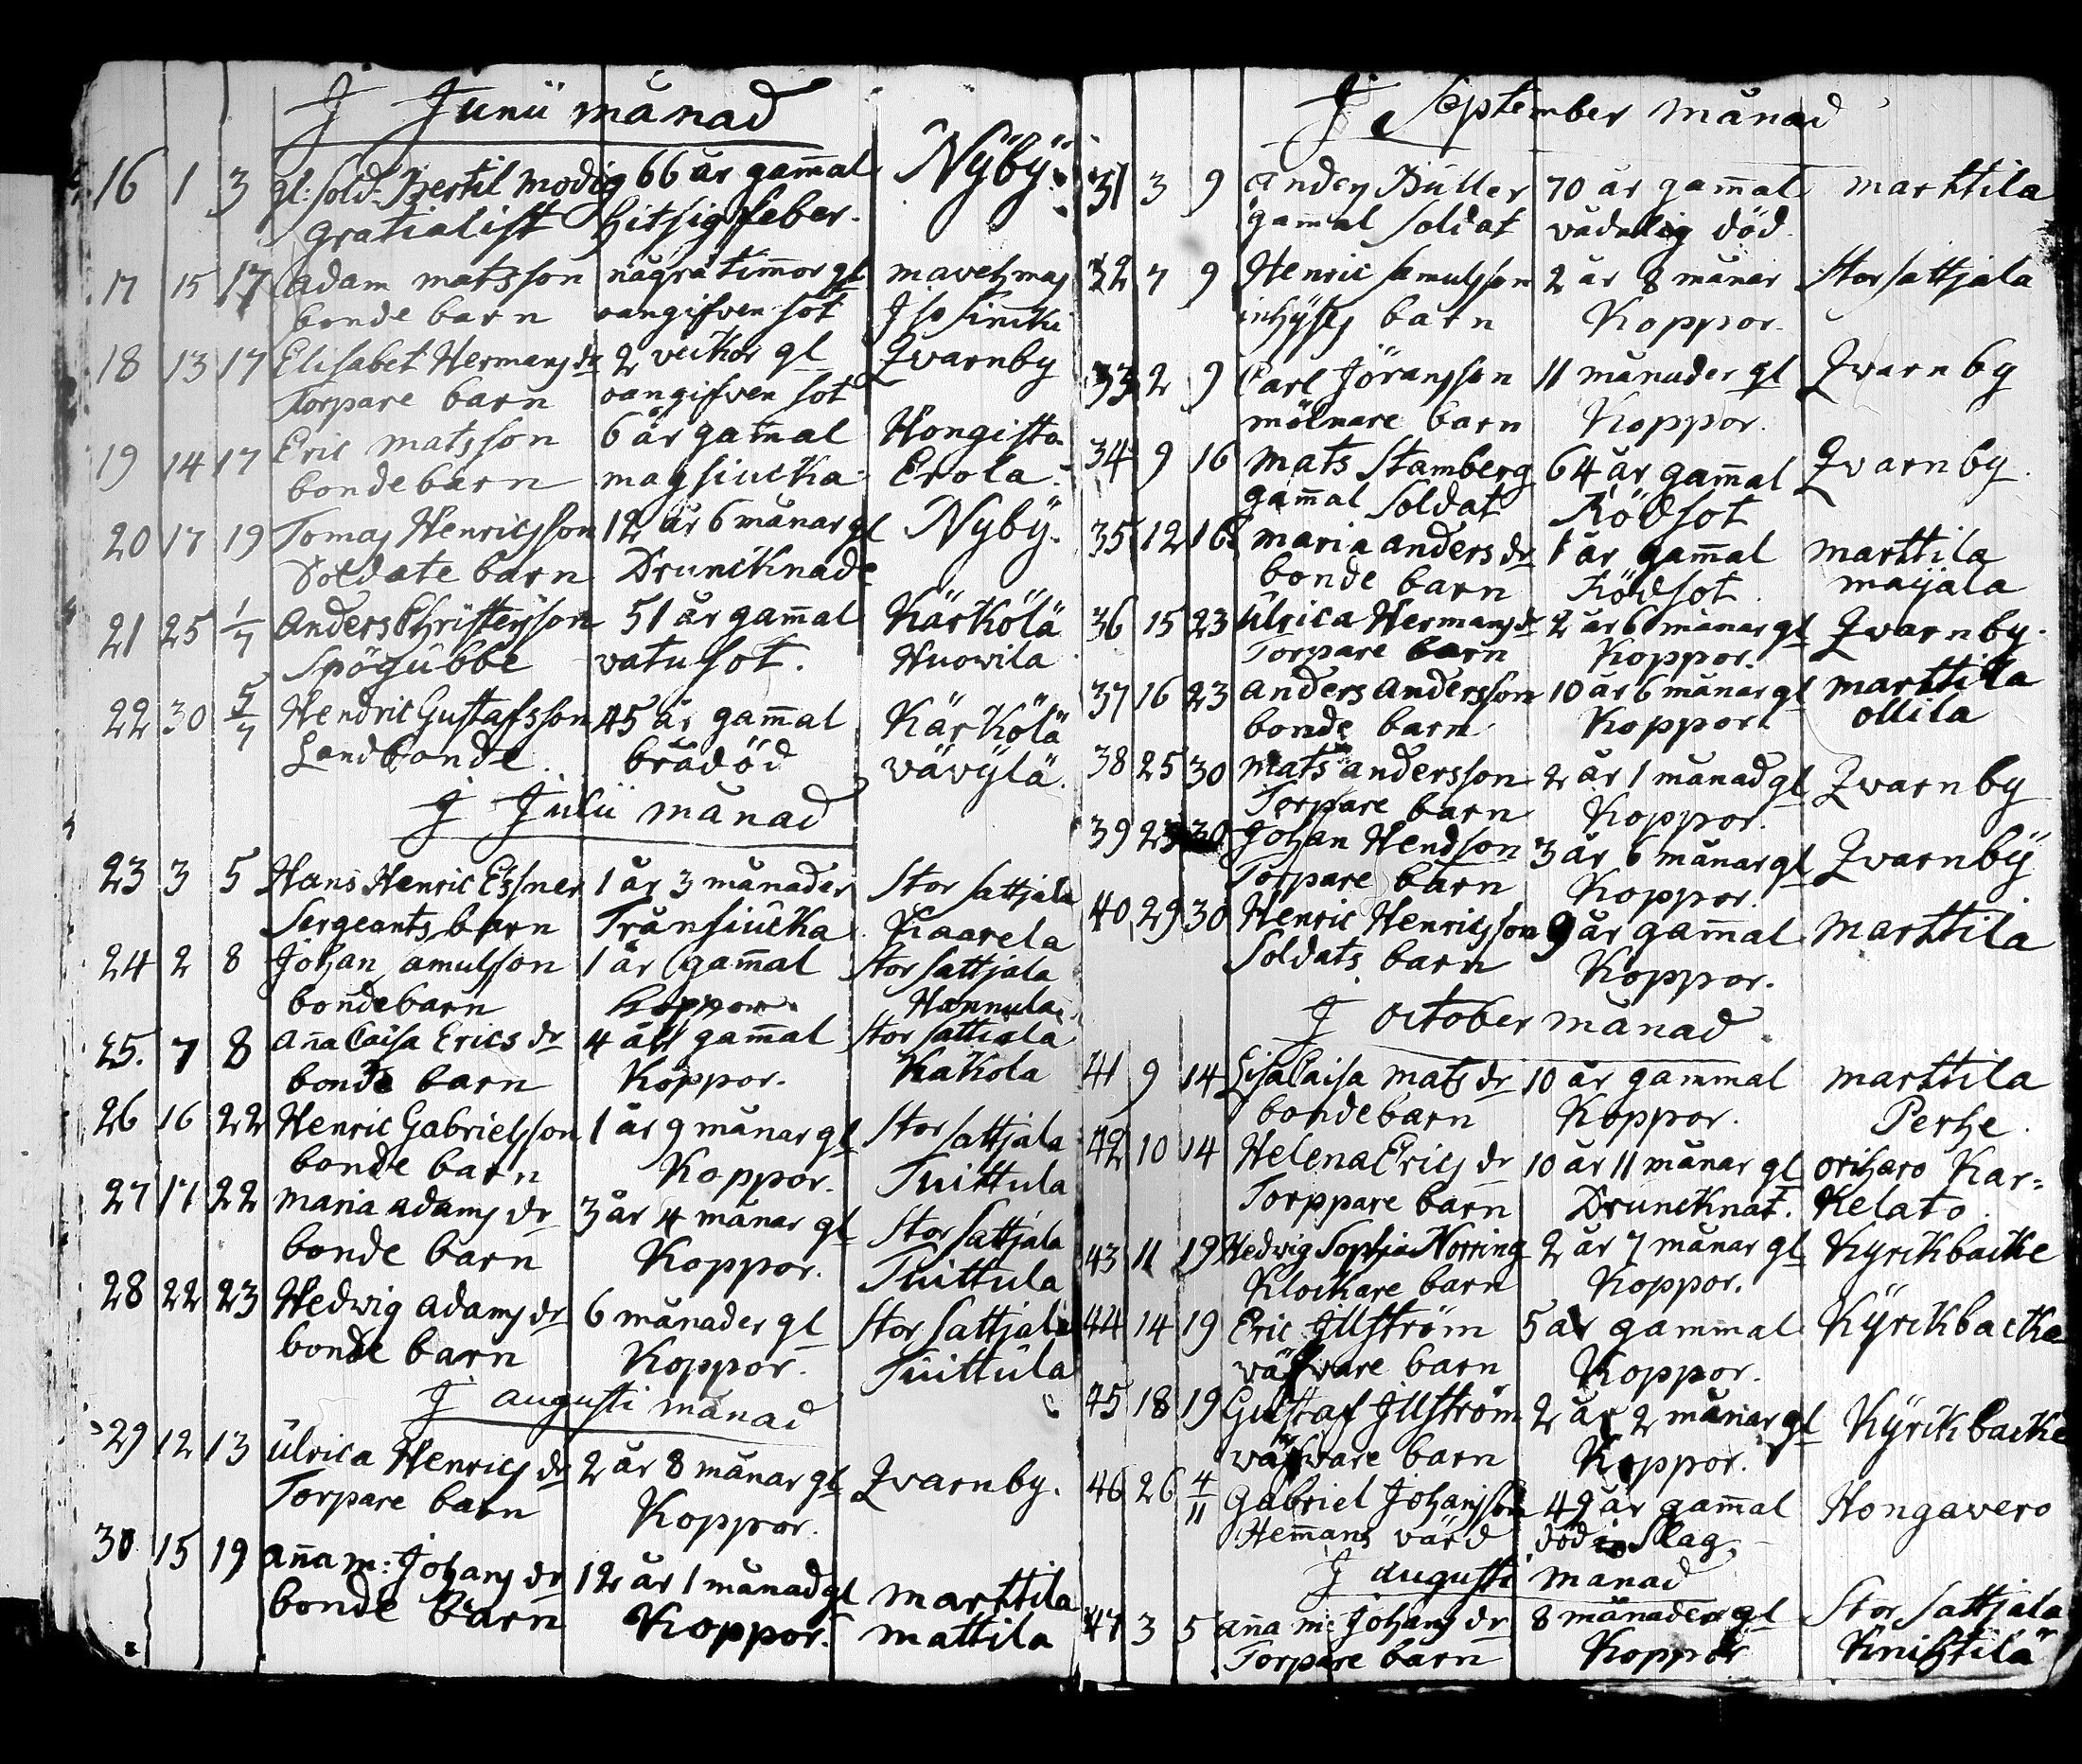 J Junii månad
16 1 3 gl: sold. Bertil Modig 66 år gam̄al Nÿbÿ.
gratialist hitsig feber.
17 15 17 Adam matsson några tim̄or gl mavehmaj
bonde barn oangifven sot Iso Simcki
18 13 17 Elisabet Hermans dr 2 veckor gl Qvarnby
Torpare barn oangifven sot
19 14 17 Eric matsson 6 år gam̄al Hongisto
bondebarn magsiucka Erola.
20 17 19 Tomas Henricsson 12 år 6 månar gl Nybÿ.
Soldate barn Druncknade
21 25 1/7 Anders Christersson 51 år gam̄al Kärkölä
Spögubbe vatusot. Huowila
22 30 5/7 Hendric Gustafsson 45 år gam̄al Kärkölä
Landbonde. brådöd vävÿlä.
J Julii månad
23 3 5 Hans Henric Essner 1 år 3 månader Stor Sattjala
Sergeants barn Trånsiucka Kaarela
24 2 8 Johan amulsson 1 år gam̄al Stor Sattjala
bondebarn koppor. Hannula
25. 7 8 an̄a Caisa Erics dr 4 år gam̄al Stor Sattiala
bonde barn Koppor. Kakola
26 16 22 Henric Gabrielsson 1 år 9 månar gl Stor Sattjala
bonde barn Koppor. Tuittula
27 17 22 maria adams dr 3 år 4 månar gl Stor Sattjala
bonde barn Koppor. Tuittula
28 22 23 Hedwig adams dr 6 månader gl Stor Sattjala
bonde barn Koppor. Tuittula
J augusti månad
29 12 13 Ulrica Henrics dr 2 år 8 månar gl Qvarnby.
Torpare barn Koppor.
30 15 19 an̄a m: Johans dr 12 år 1 månad gl marttila
bonde barn Koppor. mattila
J September månad
31 3 9 Anders Buller 70 år gam̄al marttila
gam̄al Soldat vådelig död.
32 7 9 Henric Samulsson 2 år 8 månar Stor Sattjala
inhyses barn Koppor.
33 2 9 Carl Jöransson 11 månader gl Qvarnby
mölnare barn Koppor.
34 9 16 mats Stamberg 64 år gam̄al Qvarnby.
gam̄al Soldat Rödsot
35 12 16 maria anders dr 1 år gam̄al marttila
bonde barn Rödsot maijala
36 15 23 Ulrica Hermans dr 2 år 6 månar gl Qvarnby.
Torpare barn Koppor.
37 16 23 anders andersson 10 år 6 månar gl marttila
bonde barn Koppor. ollila
38 25 30 mats andersson 2 år 1 månad gl Qvarnby
Torpare barn Koppor.
39 25 30 Johan Hendsson 3 år 6 månar gl Qvarnbÿ
Torpare barn Koppor.
40 29 30 Henric Henricsson 9 år gam̄al marttila
Soldats barn Koppor.
J october månad.
41 9 14 Lisa Caisa mats dr 10 år gammal marttila
bondebarn Koppor. Perhe.
42 10 14 Helena Erics dr 10 år 11 månar gl oriharo Kar=
Torppare barn Druncknat. Kelato.
43 11 19 Hedwig Sophia Norring 2 år 7 månar gl Kyrckbacke
Klockare barn Koppor.
44 14 19 Eric Illström 5 år gammal Kÿrckbacka
wäfvare barn Koppor.
45 18 19 Gustaf Illström 2 år 2 månar gl Kÿrckbacke
wäfvare barn Koppor.
46 26 4/11 Gabriel Johansson 49 år gam̄al Hongavero
Hem̄ans värd död i Slag.
J augusti månad
47 3 5 an̄a m: Johans dr 8 månader gl Stor Sattjala
Torpare barn Koppor Knihtilä